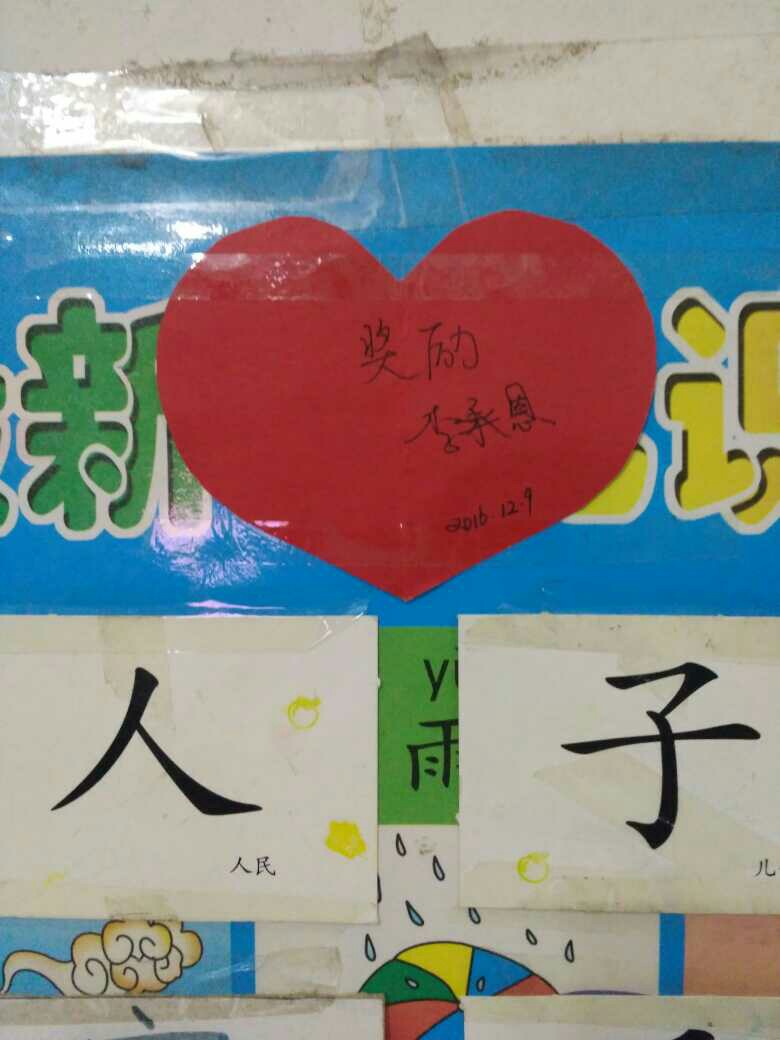 新
识
奖励
李承恩
2016.12.9
人
人民
yǔ
雨
子
儿